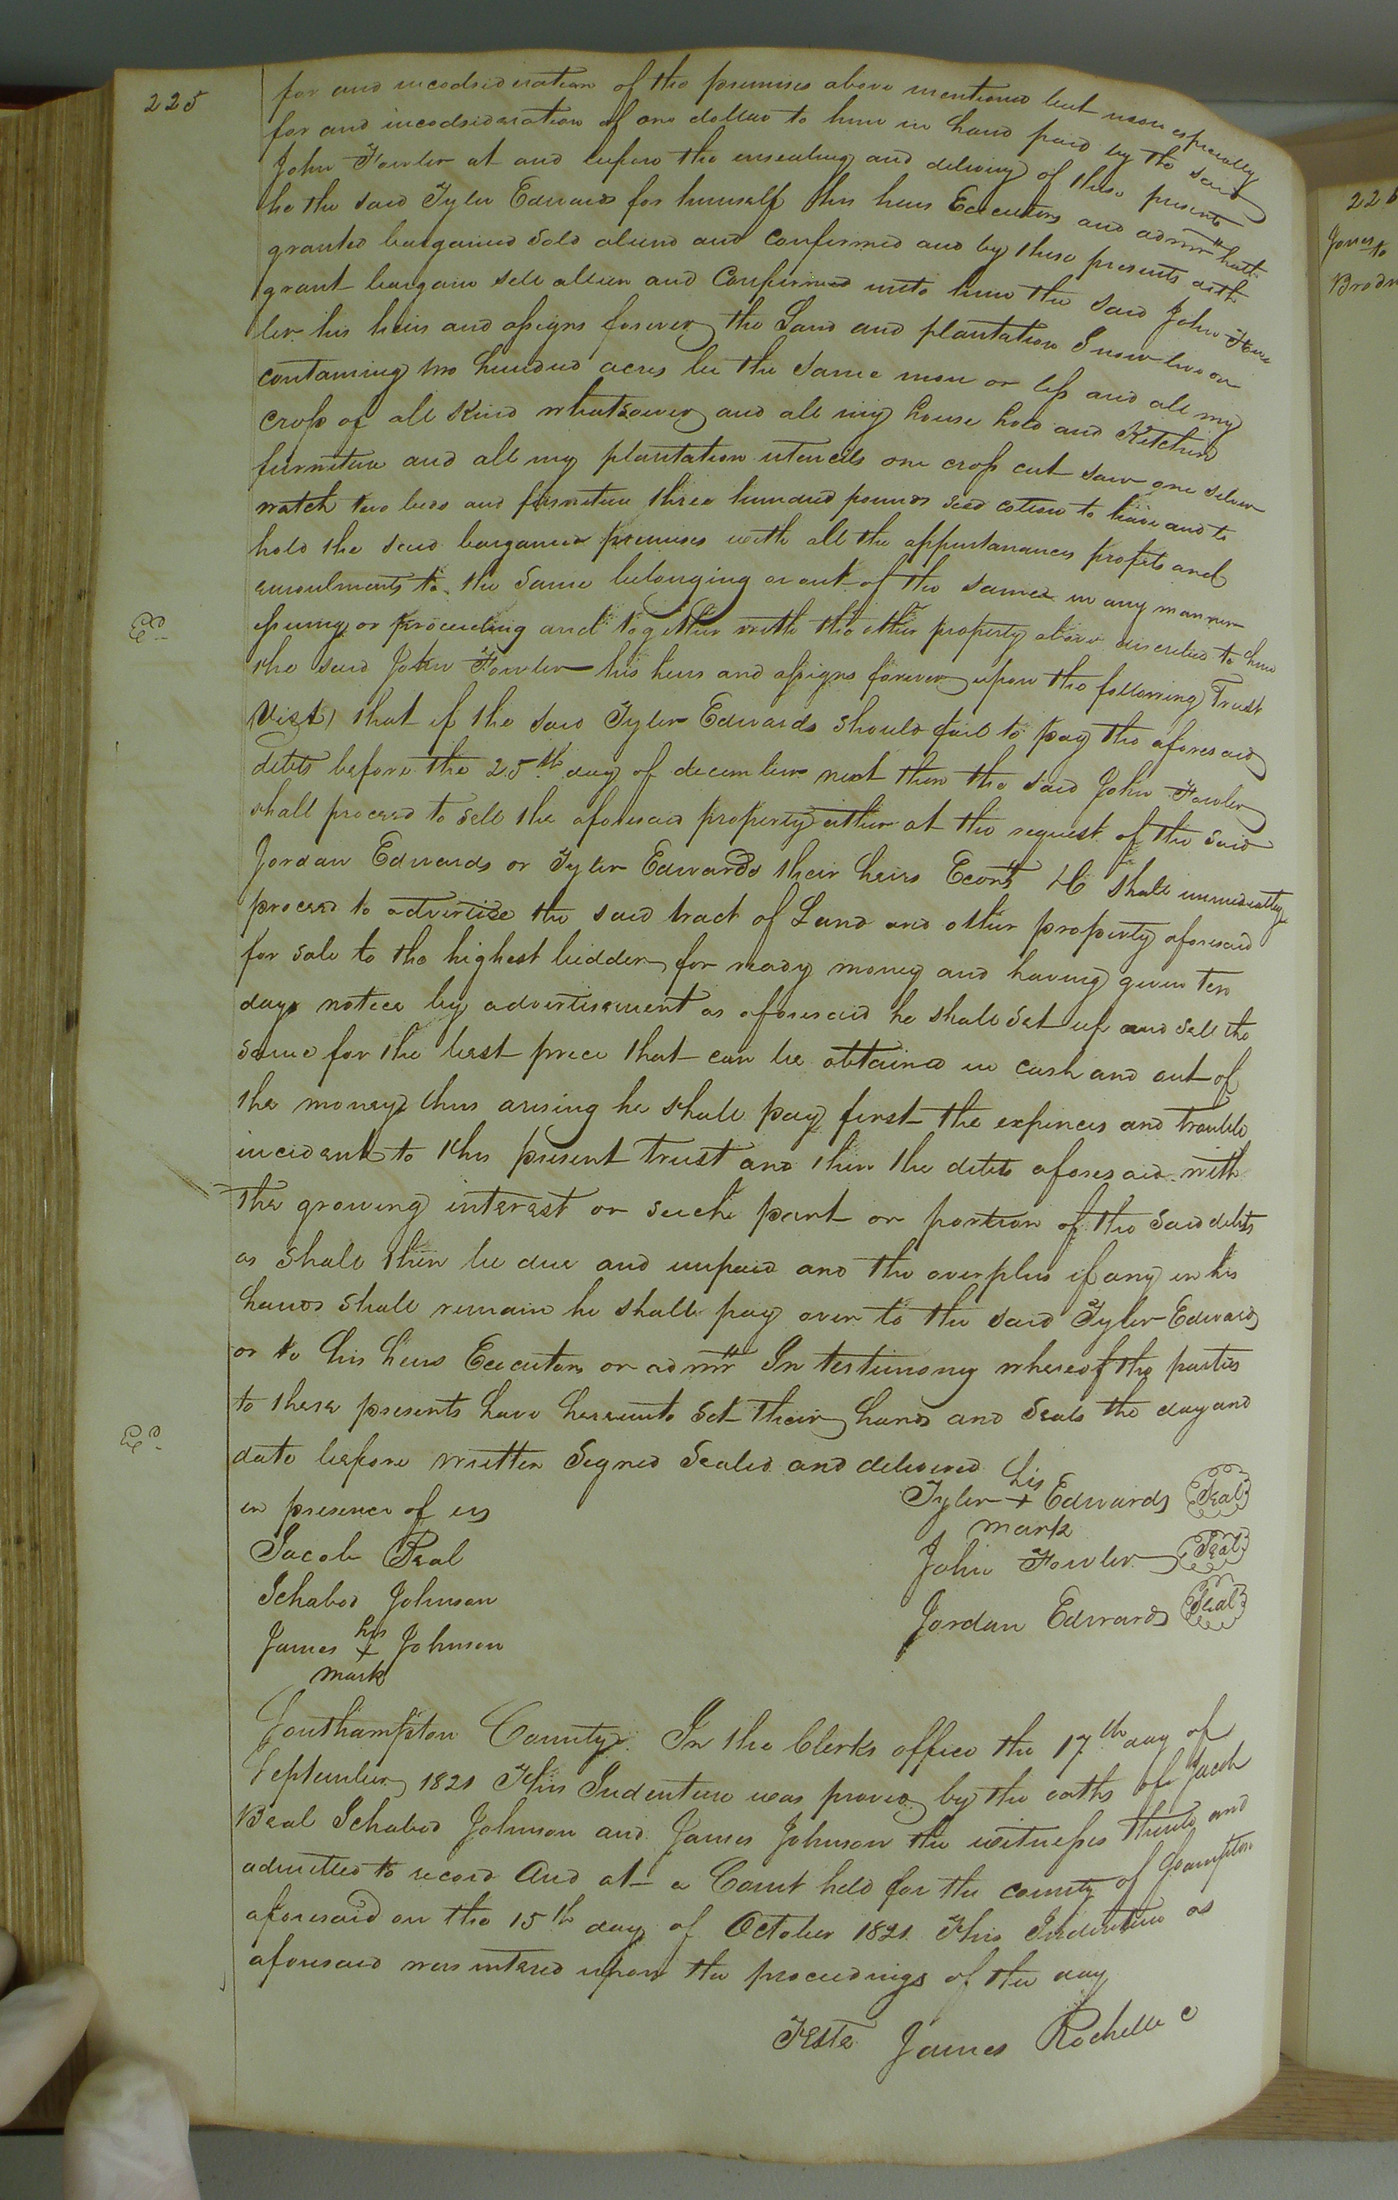 225
for and incodsideration of the premises above mentioned but more especially
for and incodsideration of one dollar to him in hand paid by the said
John Fowler at and before the ensealing and delivery of these presents
he the said Tyler Edwards for himself his heirs Executors and admrs hath
granted bargained sold aliend and confirmed and by these presents doth
grant bargain sell alien and Confirmed unto him the said John Fow
ler his heirs and assigns forever the Land and plantation I now live on
containing two hundred acres be the same more or less and all my
crop of all kind whatsoever and all my house hold and Kitchen
furniture and all my plantation utencils one cross cut saw one silver
watch two beds and furniture three hundred pounds seed cotton to have and to
hold the said bargained premises with all the appurtanances profits and
emoulments to the same belonging or out of the same in any manner
issuing or proceeding and together with the other property above discribed to him
the said John Fowler his heirs and assigns forever upon the following Trust
Vizt, that if the said Tyler Edwards should fail to pay the aforesaid
debts before the 25th day of december next then the said John Fowler
shall proceed to sell the aforesaid property either at the request of the said
Jordan Edwards or Tyler Edwards their heirs Ecors &C shall immediatly
proceed to advertize the said tract of Land and other property aforesaid
for sale to the highest bidder for ready money and having given ten
days notice by advertisement as aforesaid he shall set up and sell the
same for the best price that can be obtained in cash and out of
the money thus arising he shall pay first the expences and trouble
incident to this present trust and then the debts aforesaid with
the growing interest or such part or portion of the said debts
as shall then be due and unpaid and the overplus if any in his
hands shall remain he shall pay over to the said Tyler Edwards
or to his heirs Executors or admrs In testimony whereof the parties
to these presents have hereunto set their hands and seals the day and
date before written Signed Sealed and delivered
in presence of us
his
Tyler + Edwards Seal
mark
Jacob Beal
John Fowler Seal
Ichabod Johnson
Jordan Edwards Seal
his
James + Johnson
mark
Southampton County. In the Clerks office the 17th day of
September 1821 This Indenture was proved by the oaths of Jacob
Beal Ichabod Johnson and James Johnson the witnesses thereto and
admitted to record And at a Court held for the county of Sohampton
aforesaid on the 15th day of October 1821 This Indenture as
aforesaid was entered upon the proceedings of the day
Teste James Rochelle C
226
Jones
to